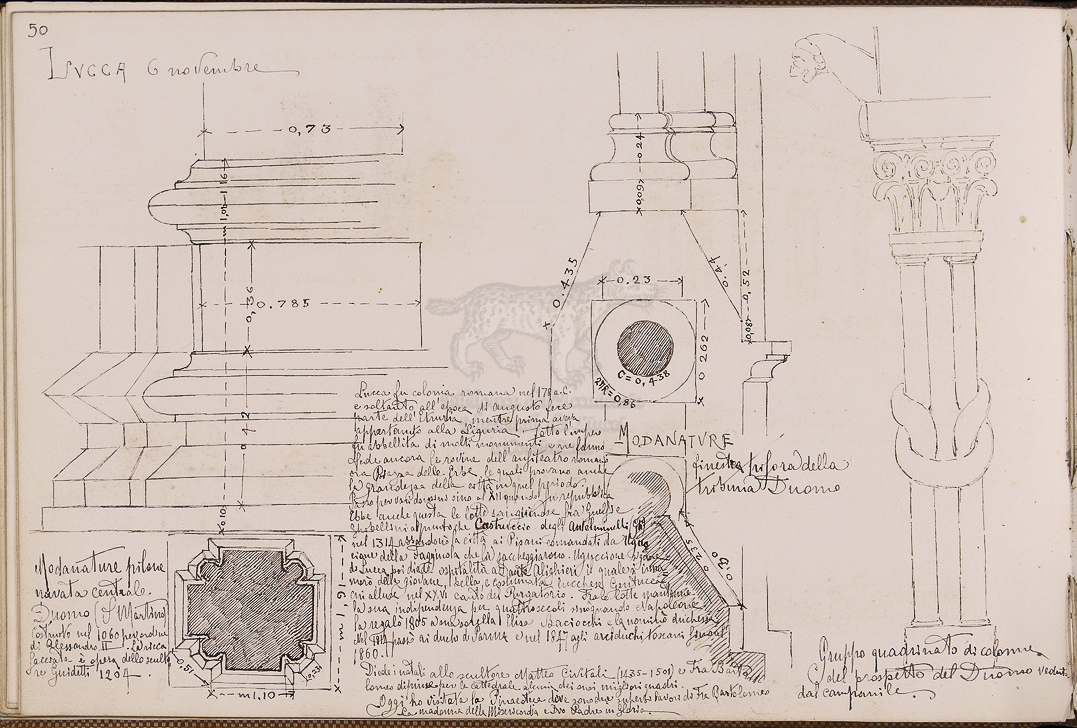 50
LVCCA 6 novembre
0,73
m 1,04-1,16
0,36
0.785
0,42
0,10
0,24
0,09
0.435
0.41
0,52
0.23
0,08
0 262
C = 0,438
2πR = 0,86
MODANATURE
finestra trifora della
tribuna Duomo
Lucca fu colonia romana nel 178 a.C.
e soltanto all'epoca di Augusto fece
parte dell'Etruria mentre prima aveva
appartenuto alla Liguria. Sotto l'impero
fu abbellita di molti monumenti e ne fanno
fede ancora le rovine dell'anfiteatro romano
ora Piazza delle Erbe le quali provano anche
la grandezza della città in quel periodo.
sino al XII quando in repubblica
Ebbe anche questa le lotte sanguinose fra Guelfi e
Ghibellini appunto che Castruccio degli Antelminelli
nel 1314 la città ai Pisani comandati da Uguc
cione della Faggiuola che la saccheggiarono. Uguccione
di Lucca poi diede ospitalità a Dante Alighieri il quale s'inna
morò della giovane, bella e costumata lucchese Gentucca
cui allude nel XXIV canto del Purgatorio. Fra le lotte mantenne
la sua indipendenza per quattro secoli Napoleone
la regalò 1805 a sua sorella Elisa Baciocchi
Nel 1814 passò ai duchi di Parma e nel 1847 agli arciduchi toscani
1860.
Diede i natali allo scultore Matteo Civitali (1435-1501) e Fra Barto
lomeo dipinse per la cattedrale alcuni dei suoi migliori quadri.
Oggi ho visitata la Pinacoteca dove sono due superbi lavori di Fra Bartolomeo
La madonna della Misericordia e Dio Padre in gloria.
Modanature pilone
navata centrale.
Duomo (S Martino)
costruito nel 1060 per ordine
di Alessandro II. La ricca
facciata è opera dello sculto
re Guidetti 1204.
0,51
0,31
m 1.10
m 1,91
0 235
0.60
Gruppo quadrinato di colonne
del prospetto del Duomo veduto
dal campanile.